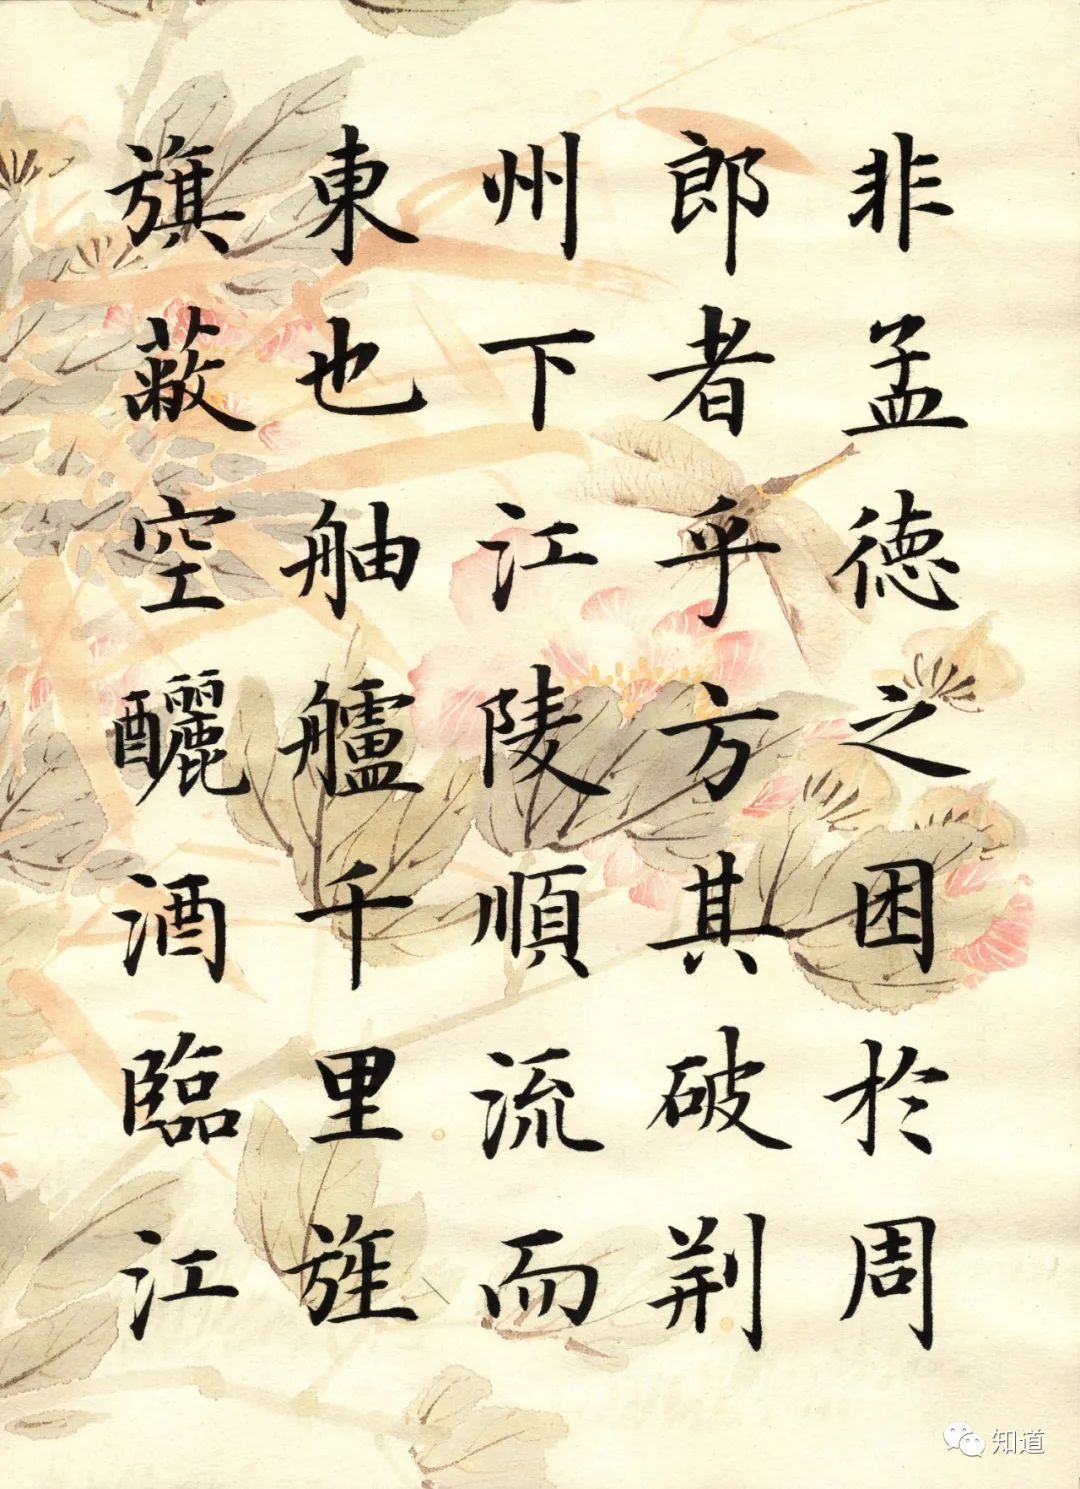 非孟德之困於周
郎者乎方其破荆
州下江陵順流而
東也舳艫千里旌
旗蔽空釃酒臨江
知道